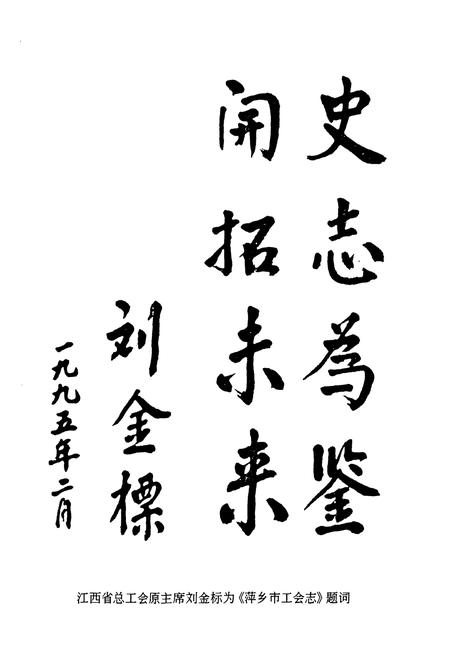 史志为鉴
開拓未来
刘金標
一九九五年二月
江西省总工会原主席刘金标为《萍乡市工会志》题词